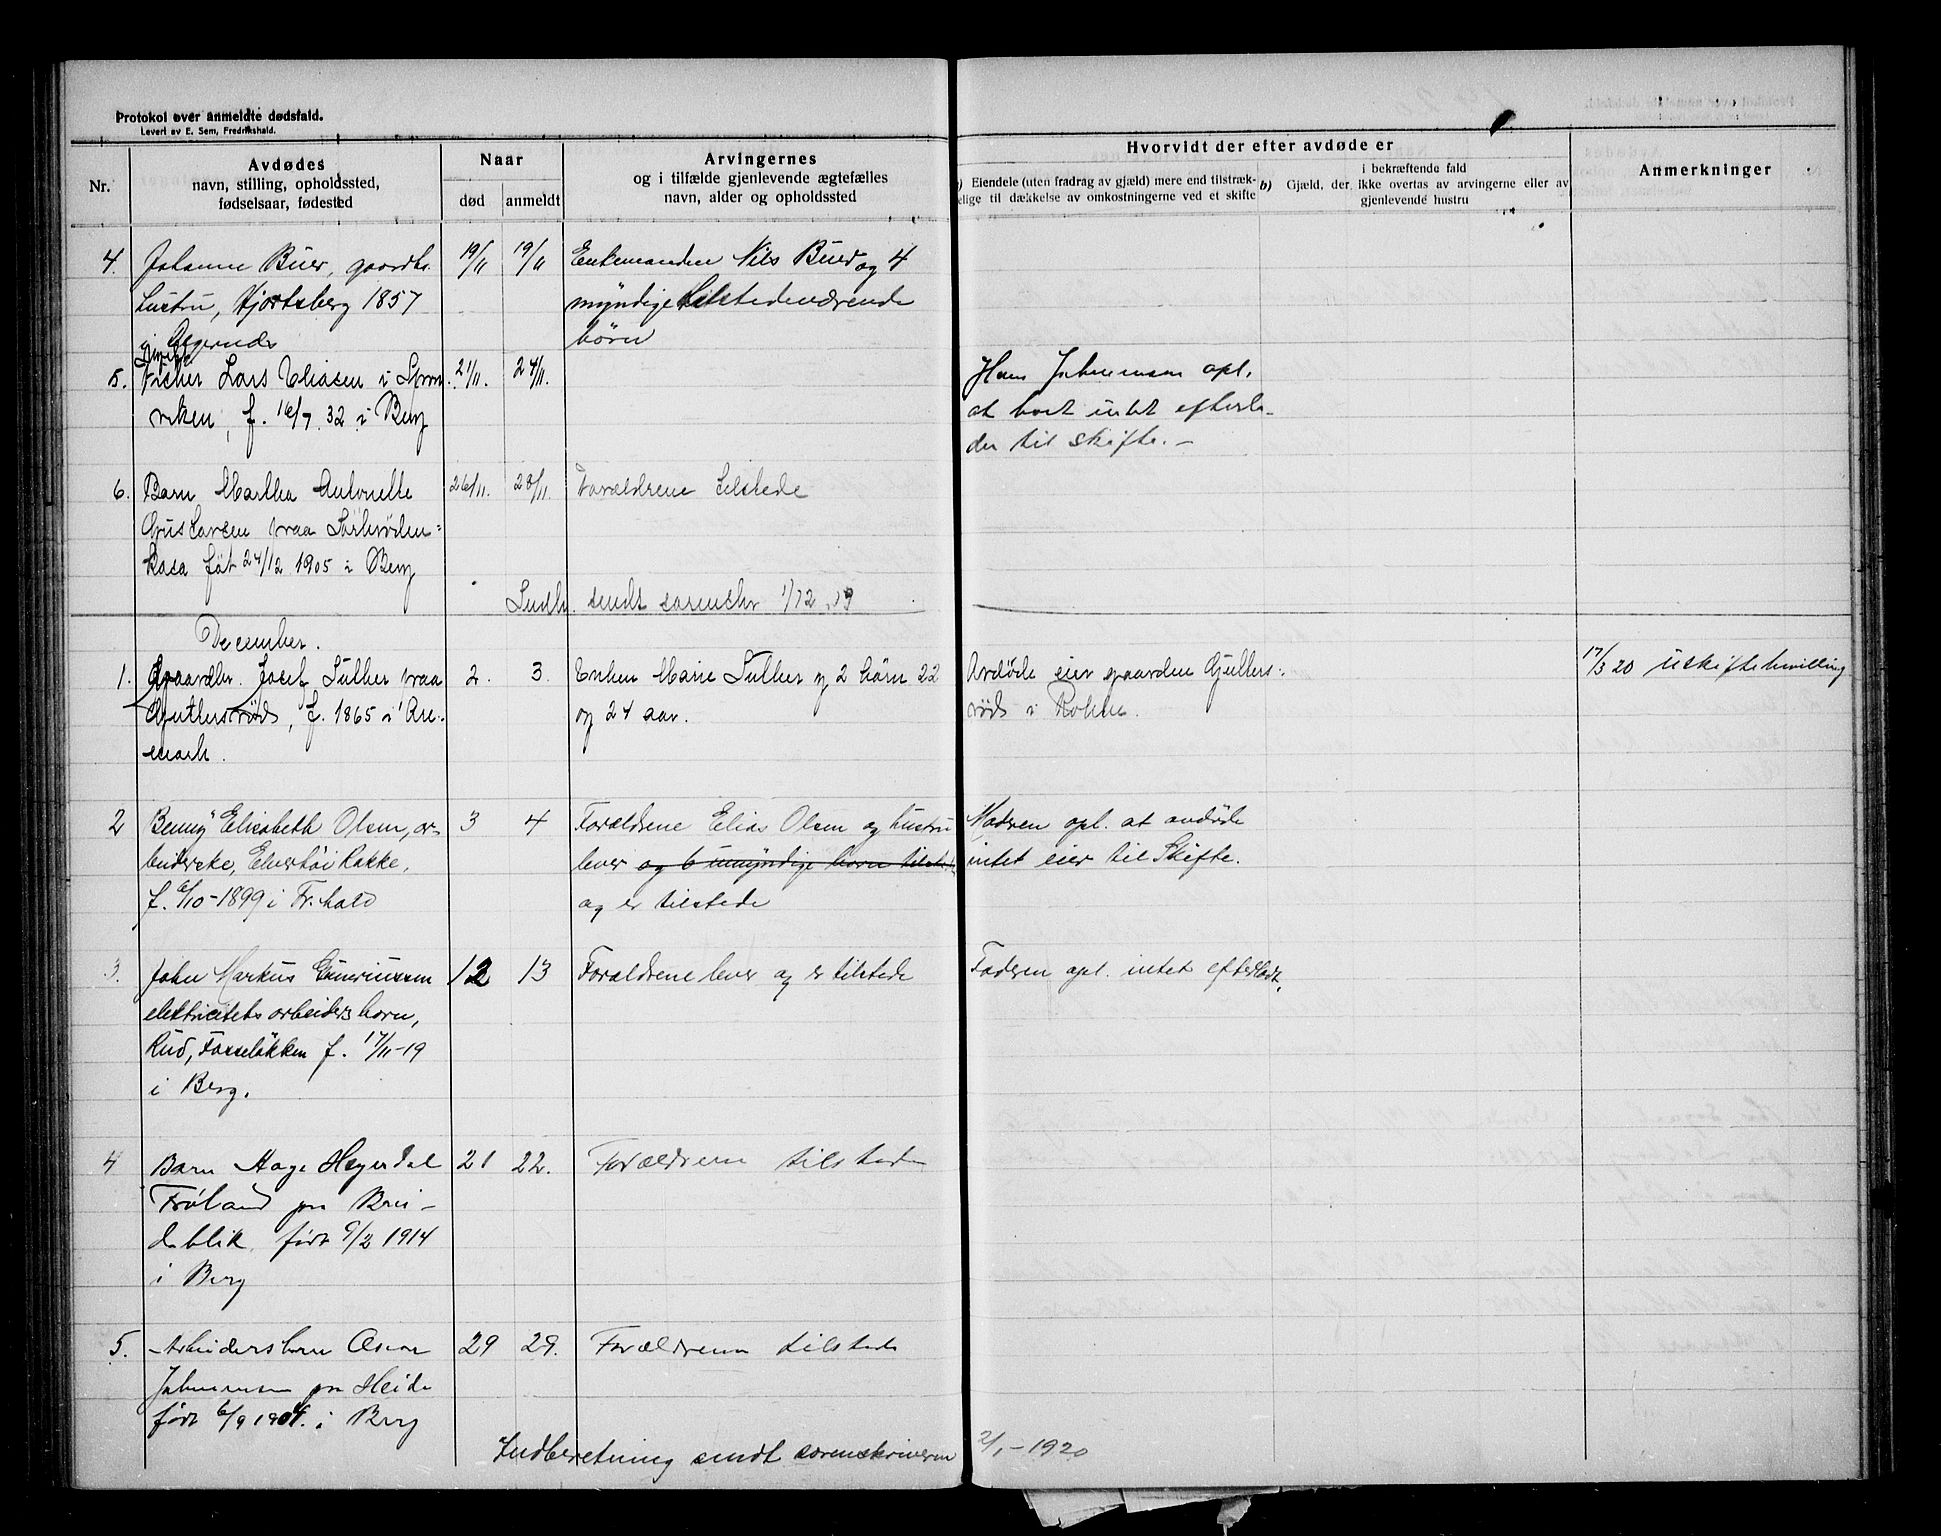 Protokol over anmeldte dødsfald.
Levert av E. Sem, Fredrikshald.
Nr.
Avdødes
navn, stilling, opholdssted,
fødselsaar, fødested
Naar
død
anmeldt
Arvingernes
og i tilfælde gjenlevende ægtefælles
navn, alder og opholdssted
Hvorvidt der efter avdøde er
Eiendele (uten fradrag av gjæld) mere end tilstræk-
elige til dækkelse av omkostningerne ved et skifte
i bekræftende fald
b) Gjæld, der ikke overtas av arvingerne eller av
gjenlevende hustru
Anmerkninger
4. Johanne Buer, gaardbr. 19/11 19/11 Enkemanden Nils Buer og 4
hustru, Hjortsberg 1857 myndige tilstedeværende
i Degernes børn
5. Fisker Lars Eliasen i 21/11. 24/11. Hans Johannesen opl.
viken, f. 16/7 32 i Berg at boet intet efterla-
der til skifte. -
6. Barn Martha Antonette 26/11. 28/11. Forældrene tilstede
Gustavsen paa
kasa føt 24/12 1905 i Berg
Indb. sendt sorenskr 1/12 19
December.
1. Gaardbr. Josef Sulher paa 2. 3. Enken Marie Sulher og 2 børn 22 Avdøde eier gaarden Gjullers- 17/3 20 uskiftebevilling
Gjullersrøds, f. 1865 i Are- og 24 aar. røds i Rokke.
mark.
2 Benny Elisabeth Olsen, ar- 3 4 Forældrene Elias Olsen og hustru Moderen opl. at avdøde
beiderske, Elverhøi Rokke, lever og 6 umyndige børn tilstede intet eier til Skifte.
f. 6/10-1899 i Fr.hald og er tilstede
3. John Markus Guneriussen 12 13 Forældrene lever og er tilstede Faderen opl. intet efterladt.
elektricitetsarbeiders barn,
Rud, Fosseløkken f. 17/11-19
i Berg.
4 Barn Aage Heyerdal 21 22. Forældrene tilstede
Frøland paa Brei-
deblik, født 9/2 1914
i Berg
5. Arbeidersbarn Oscar 29 29. Forældrene tilstede
Johannesen paa Heide
født 6/9 1904. i Berg
Indberetning sendt sorenskriveren 2/1-1920